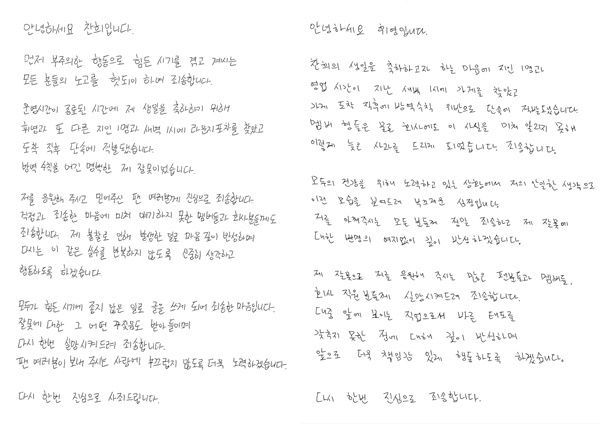 안녕하세요 찬희입니다.
먼저 부주의한 행동으로 힘든 시기를 겪고 계시는
모든 분들의 노고를 헛되이 하여 죄송합니다.
운영시간이 종료된 시간에 제 생일을 축하하기 위해
휘영과 또 다른 지인 1명과 새벽 1시에 라운지포차를 찾았고
도착 직후 단속에 적발됐습니다.
방역 수칙을 어긴 명백한 제 잘못이었습니다.
저를 응원해 주시고 믿어주신 팬 여러분께 진심으로 죄송합니다.
걱정과 죄송한 마음에 미처 얘기하지 못한 멤버들과 회사분들께도
죄송합니다. 제 불찰로 인해 발생한 일로 마음 깊이 반성하며
다시는 이 같은 실수를 반복하지 않도록 신중히 생각하고
행동하도록 하겠습니다.
모두가 힘든 시기에 좋지 않은 일로 글을 쓰게 되어 죄송한 마음입니다.
잘못에 대한 그 어떤 꾸짖음도 받아들이며
다시 한번 실망시켜드려 죄송합니다.
팬 여러분이 보내 주시는 사랑에 부끄럽지 않도록 더욱 노력하겠습니다.
다시 한번 진심으로 사죄드립니다.
안녕하세요 휘영입니다.
찬희의 생일을 축하하고자 하는 마음에 지인 1명과
영업 시간이 지난 새벽 1시에 가게를 찾았고
가게 도착 직후에 방역수칙 위반으로 단속에 적발됐습니다.
멤버 형들은 물론 회사에도 이 사실을 미처 알리지 못해
이렇게 늦은 사과를 드리게 되었습니다. 죄송합니다.
모두의 건강을 위해 노력하고 있는 상황에서 저의 안일한 생각으로
이런 모습을 보여드려 부끄러운 심정입니다.
저를 아껴주시는 모든 분들께 정말 죄송하고 제 잘못에
대한 변명의 여지없이 깊이 반성하겠습니다.
제 잘못으로 저를 응원해 주시는 많은 팬분들과 멤버들,
회사 직원 분들께 실망시켜드려 죄송합니다.
대중 앞에 보이는 직업으로서 바른 태도를
갖추지 못한 점에 대해 깊이 반성하며
앞으로 더욱 책임감 있게 행동하도록 하겠습니다.
다시 한번 진심으로 죄송합니다.